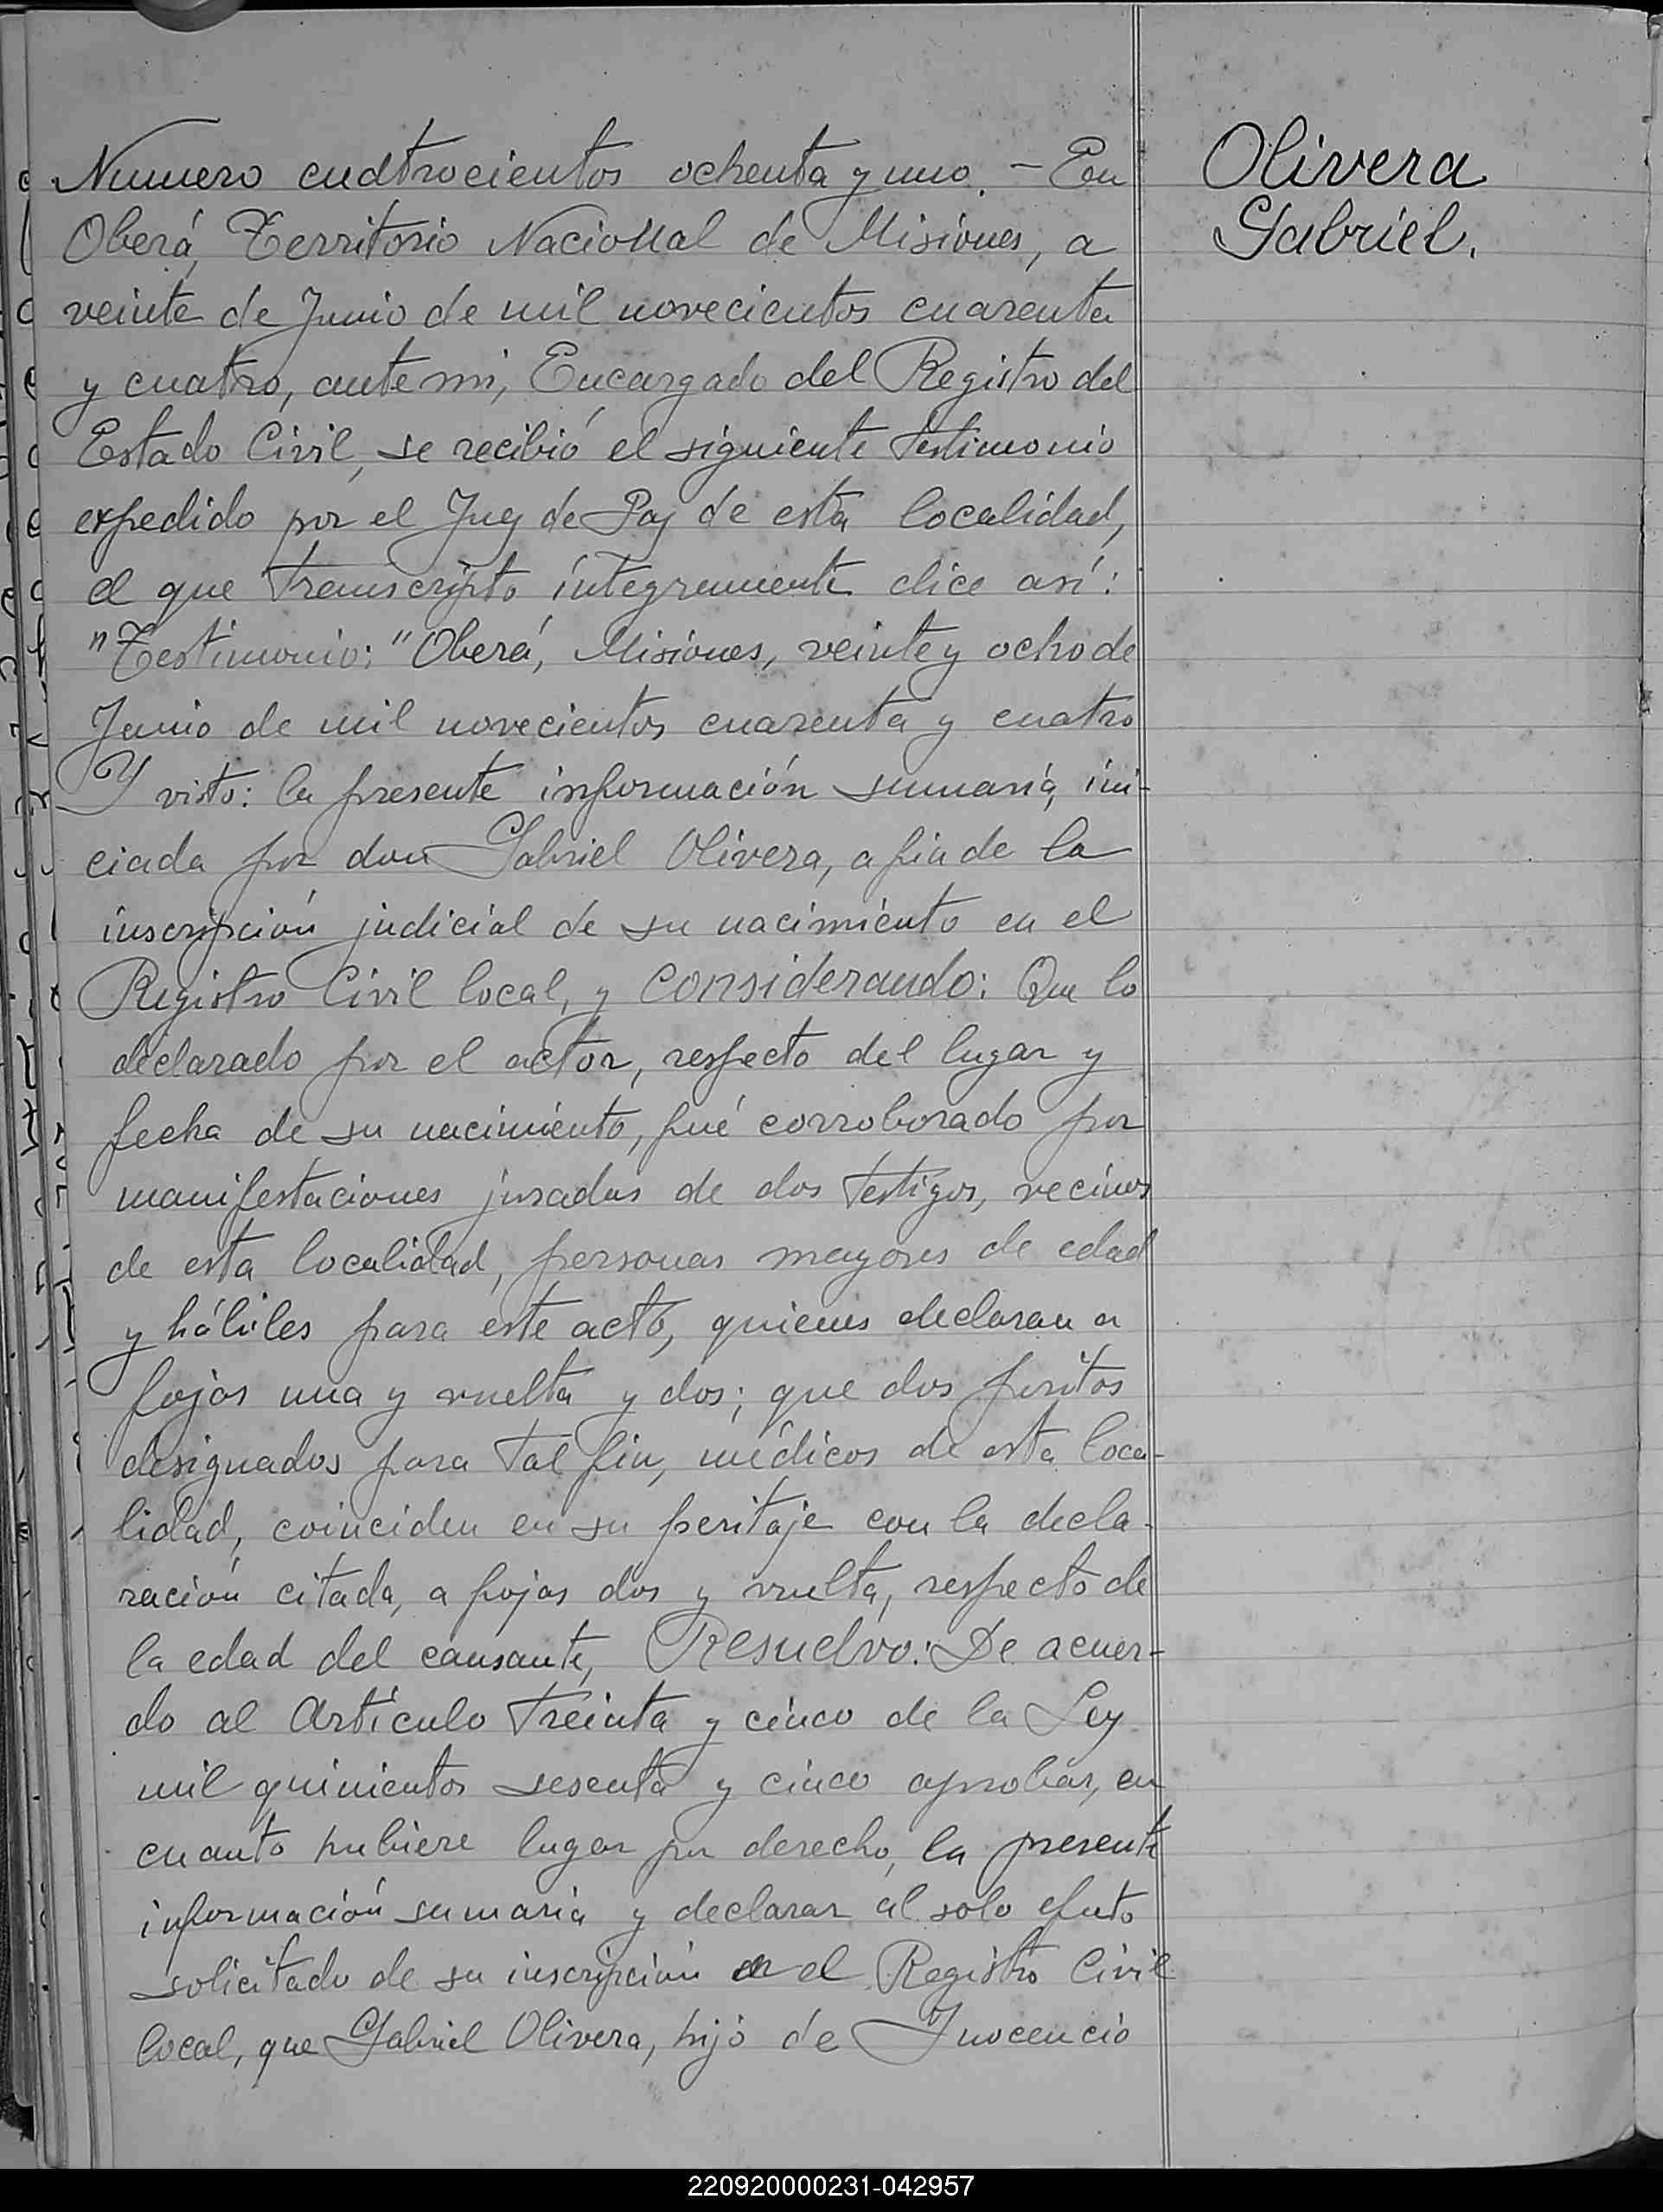 Numero cuatrocientos ochenta y uno. - En
Oberá, Territorio Nacional de Misiones, a
veinte de Junio de mil novecientos cuarenta
y cuatro, ante mi, Encargado del Registro del
Estado Civil, se recibió el siguiente testimonio
expedido por el Juez de Paz de esta localidad,
el que transcripto íntegramente dice así:
"Testimonio: "Oberá, Misiones, veinte y ocho de
Junio de mil novecientos cuarenta y cuatro
Y visto: la presente información sumaria, ini-
ciada por don Gabriel Olivera, a fin de la
inscripción judicial de su nacimiento en el
Registro Civil local, y considerando: Que lo
declarado por el actor, respecto del lugar y
fecha de su nacimiento, fué corroborado por
manifestaciones juradas de dos testigos, vecinos
de esta localidad, personas mayores de edad
y hábiles para este acto, quienes declaran a
fojas una y vuelta y dos; que dos peritos
designados para tal fin, médicos de esta loca-
lidad, coinciden en su peritaje con la decla-
ración citada, a fojas dos y vuelta, respecto de
la edad del causante, Resuelvo: De acuer-
do al Artículo treinta y cinco de la Ley
mil quinientos sesenta y cinco aprobar, en
cuanto hubiere lugar por derecho, la presente
información sumaria y declarar al solo efecto
solicitado de su inscripción en el Registro Civil
local, que Gabriel Olivera, hijo de Inocencio
Olivera
Gabriel.
220920000231-042957